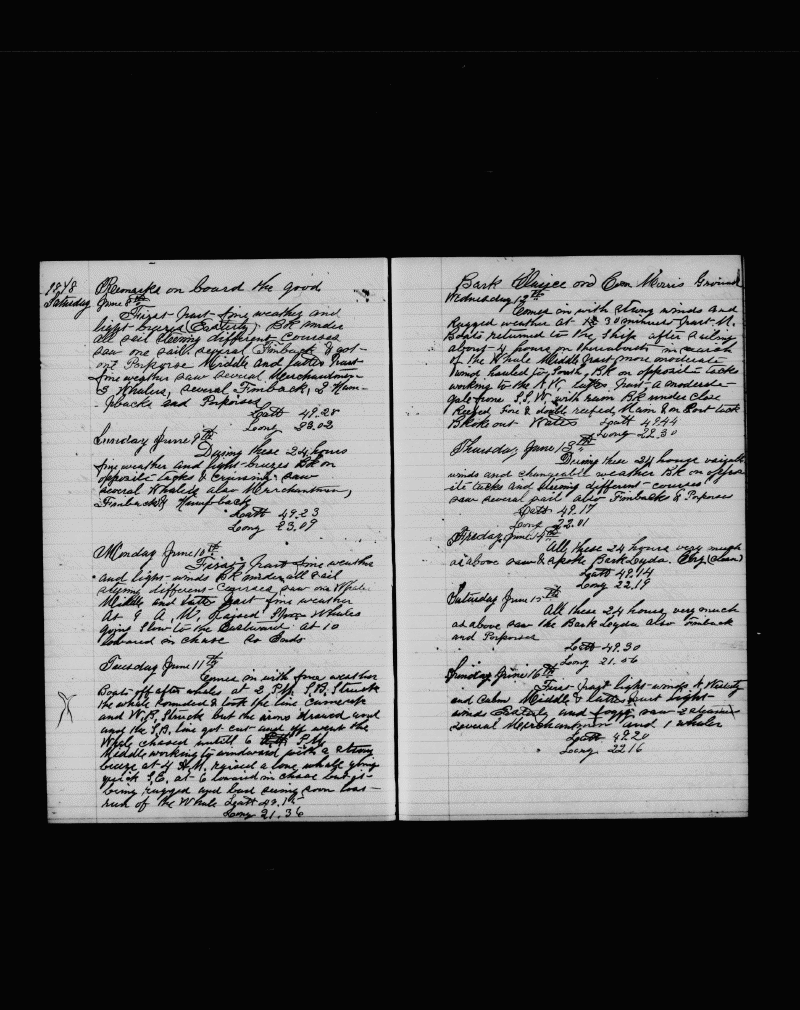 1848 Remarks on board the good
Saturday June 8th
First part fine weather and
light breezes (Easterly) Bk under
all sail steering different courses
saw one sail several Finback & got
out Porpoise Middle and latter part
fine weather saw several Merchantmen
3 Whalers, several Finback, 2 Hum-
-pbacks and Porpoises
Latt 49.28
Long 23.02
Sunday June 9th
During these 24 hours
fine weather and light breezes Bk on
opposite tacks & Cruising saw
several Whalers also Merchantmen,
Finback & Humpback
Latt 49.23
Long 23.09
Monday June 10th
First part fine weather
and light winds Bk under all sail
steering different courses saw one Whale
Middle and latter part fine weather
At 9 A.M. raised Whales
going slow to the Eastward at 10
lowered in chase So Ends
Tuesday June 11th
Comes in with fine weather
Boats off after whales at 2 P.M. S.B. Struck
the whale sounded & took the line
and W.B. Struck but the irons drawed and
and the S.B. line got cut and off went the
Whale chased untill 6 P.M.
Middle working to windward with a strong
breeze at 4 A.M. raised a lone whale going
quick S.E. at 6 lowered in chase but it
being rugged and bad seeing soon lost
run of the Whale Latt 49.15
Long 21.36
Bark Alice on Com Morris Ground
Wednesday 12th
Comes in with strong winds and
Rugged weather at 30 minuets past M.
Boats returned to the Ship after sailing
about 4 hours on in search
of the Whale Middle part more moderate
wind hauled to South, Bk on opposite tacks
working to the latter part a moderate
gale from S.S.W. with rain Bk under close
Reefed Fore & double reefed Main & on Port tack
Broke out Water Latt 49.44
Long 22.30
Thursday June 13th
During these 24 hours
winds and changeable weather Bk on opposite
tacks and steering different courses
saw several sail also Finbacks & Porpoises
Latt 49.17
Long 22.01
Friday June 14th
All these 24 hours very much
as above saw & spoke Bark Leyda. (Clean)
Latt 49.14
Long 22.18
Saturday June 15th
All these 24 hours very much
as above saw the Bark Leyden also Finback
and Porpoises
Latt 49.30
Long 21.56
Sunday June 16th
First part light winds & Westerly
and Calm Middle & latter part light
winds Easterly and foggy saw
several Merchantmen and 1 whaler
Latt 49.20
Long 22.16